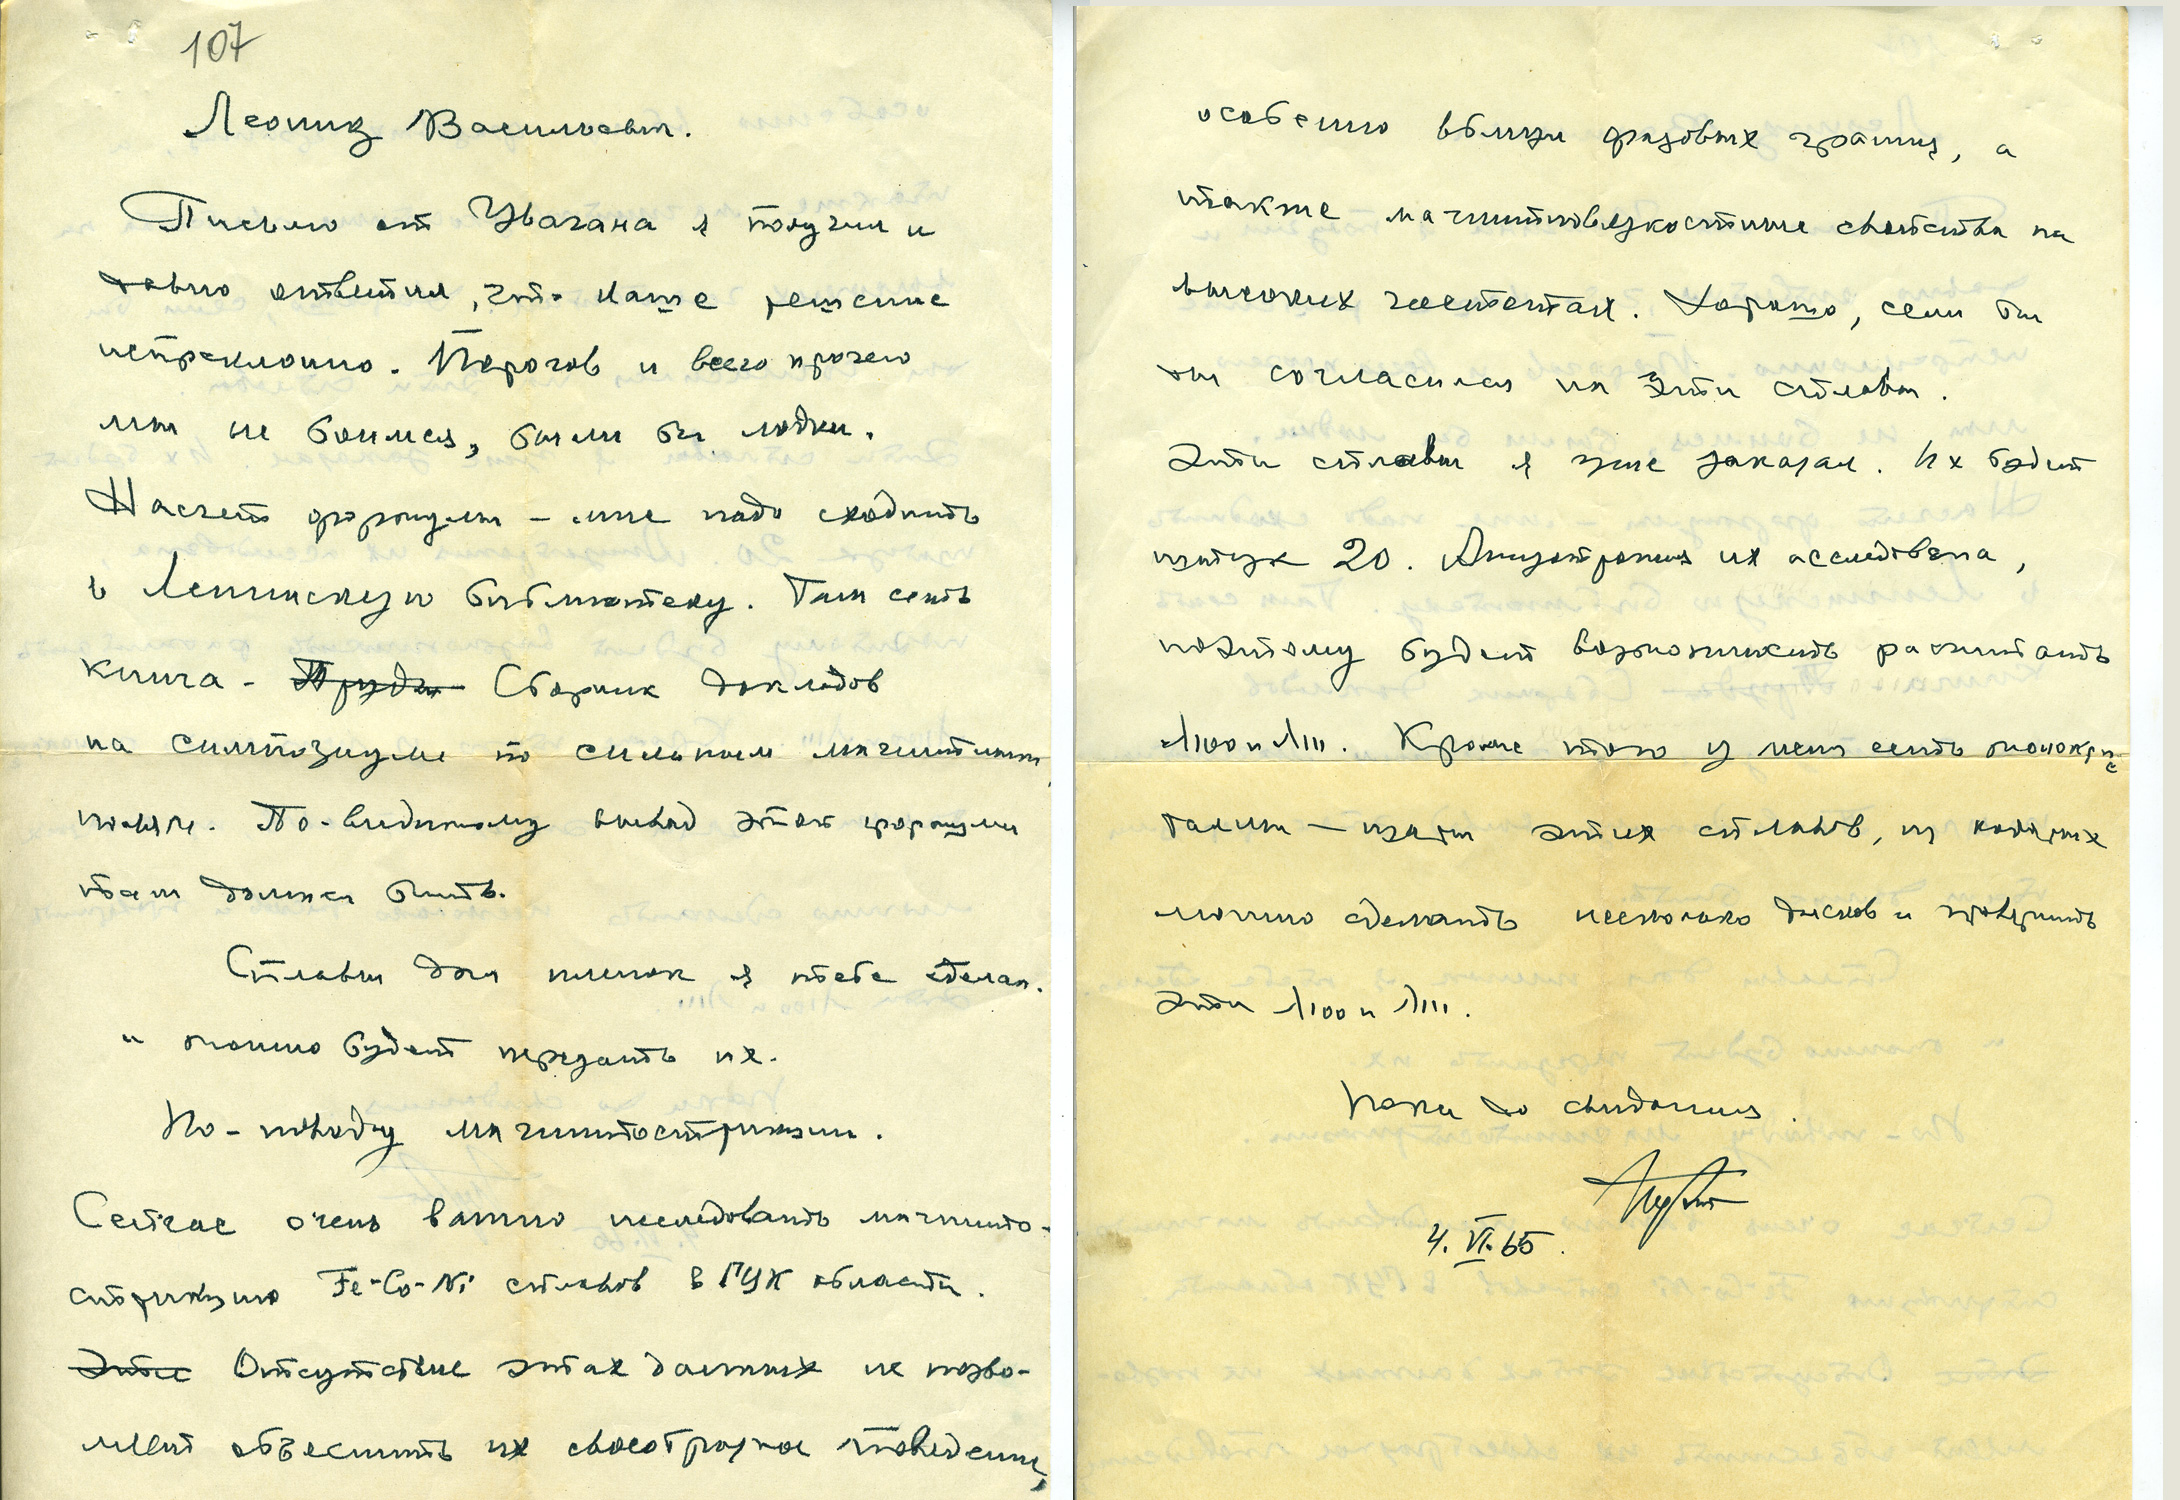 107
Леонид Васильевич.
Письмо от Увагана я получил и
давно ответил, что наше решение
непреклонно. Порогов и всего прочего
мы не боимся, были бы лодки.
Насчет формулы – мне надо сходить
в Ленинскую библиотеку. Там есть
книга – Труды Сборник докладов
на симпозиуме по сильным магнитным
полям. По-видимому вывод этой формулы
там должен быть.
Сплавы для пленок я тебе сделал.
и можно будет передать их.
По-поводу магнитострикции.
Сейчас очень важно исследовать магнито-
стрикцию Fe-Co-Ni сплавов в ГЦК области.
Это Отсутствие этих данных не позво-
ляет объяснить их своеобразное поведение,
особенно вблизи фазовых границ, а
также магнитновязкостные свойства на
высоких частотах. Хорошо, если бы
ты согласился на эти сплавы.
Эти сплавы я уже заказал. Их будет
штук 20. Анизотропия их исследована,
поэтому будет возможность расчитать
λ100 и λ111. Кроме того у меня есть монокрис
таллы – пять этих сплавов, из которых
можно сделать несколько дисков и проверить
эти λ100 и λ111.
Пока до свидания.
4. VI. 65.